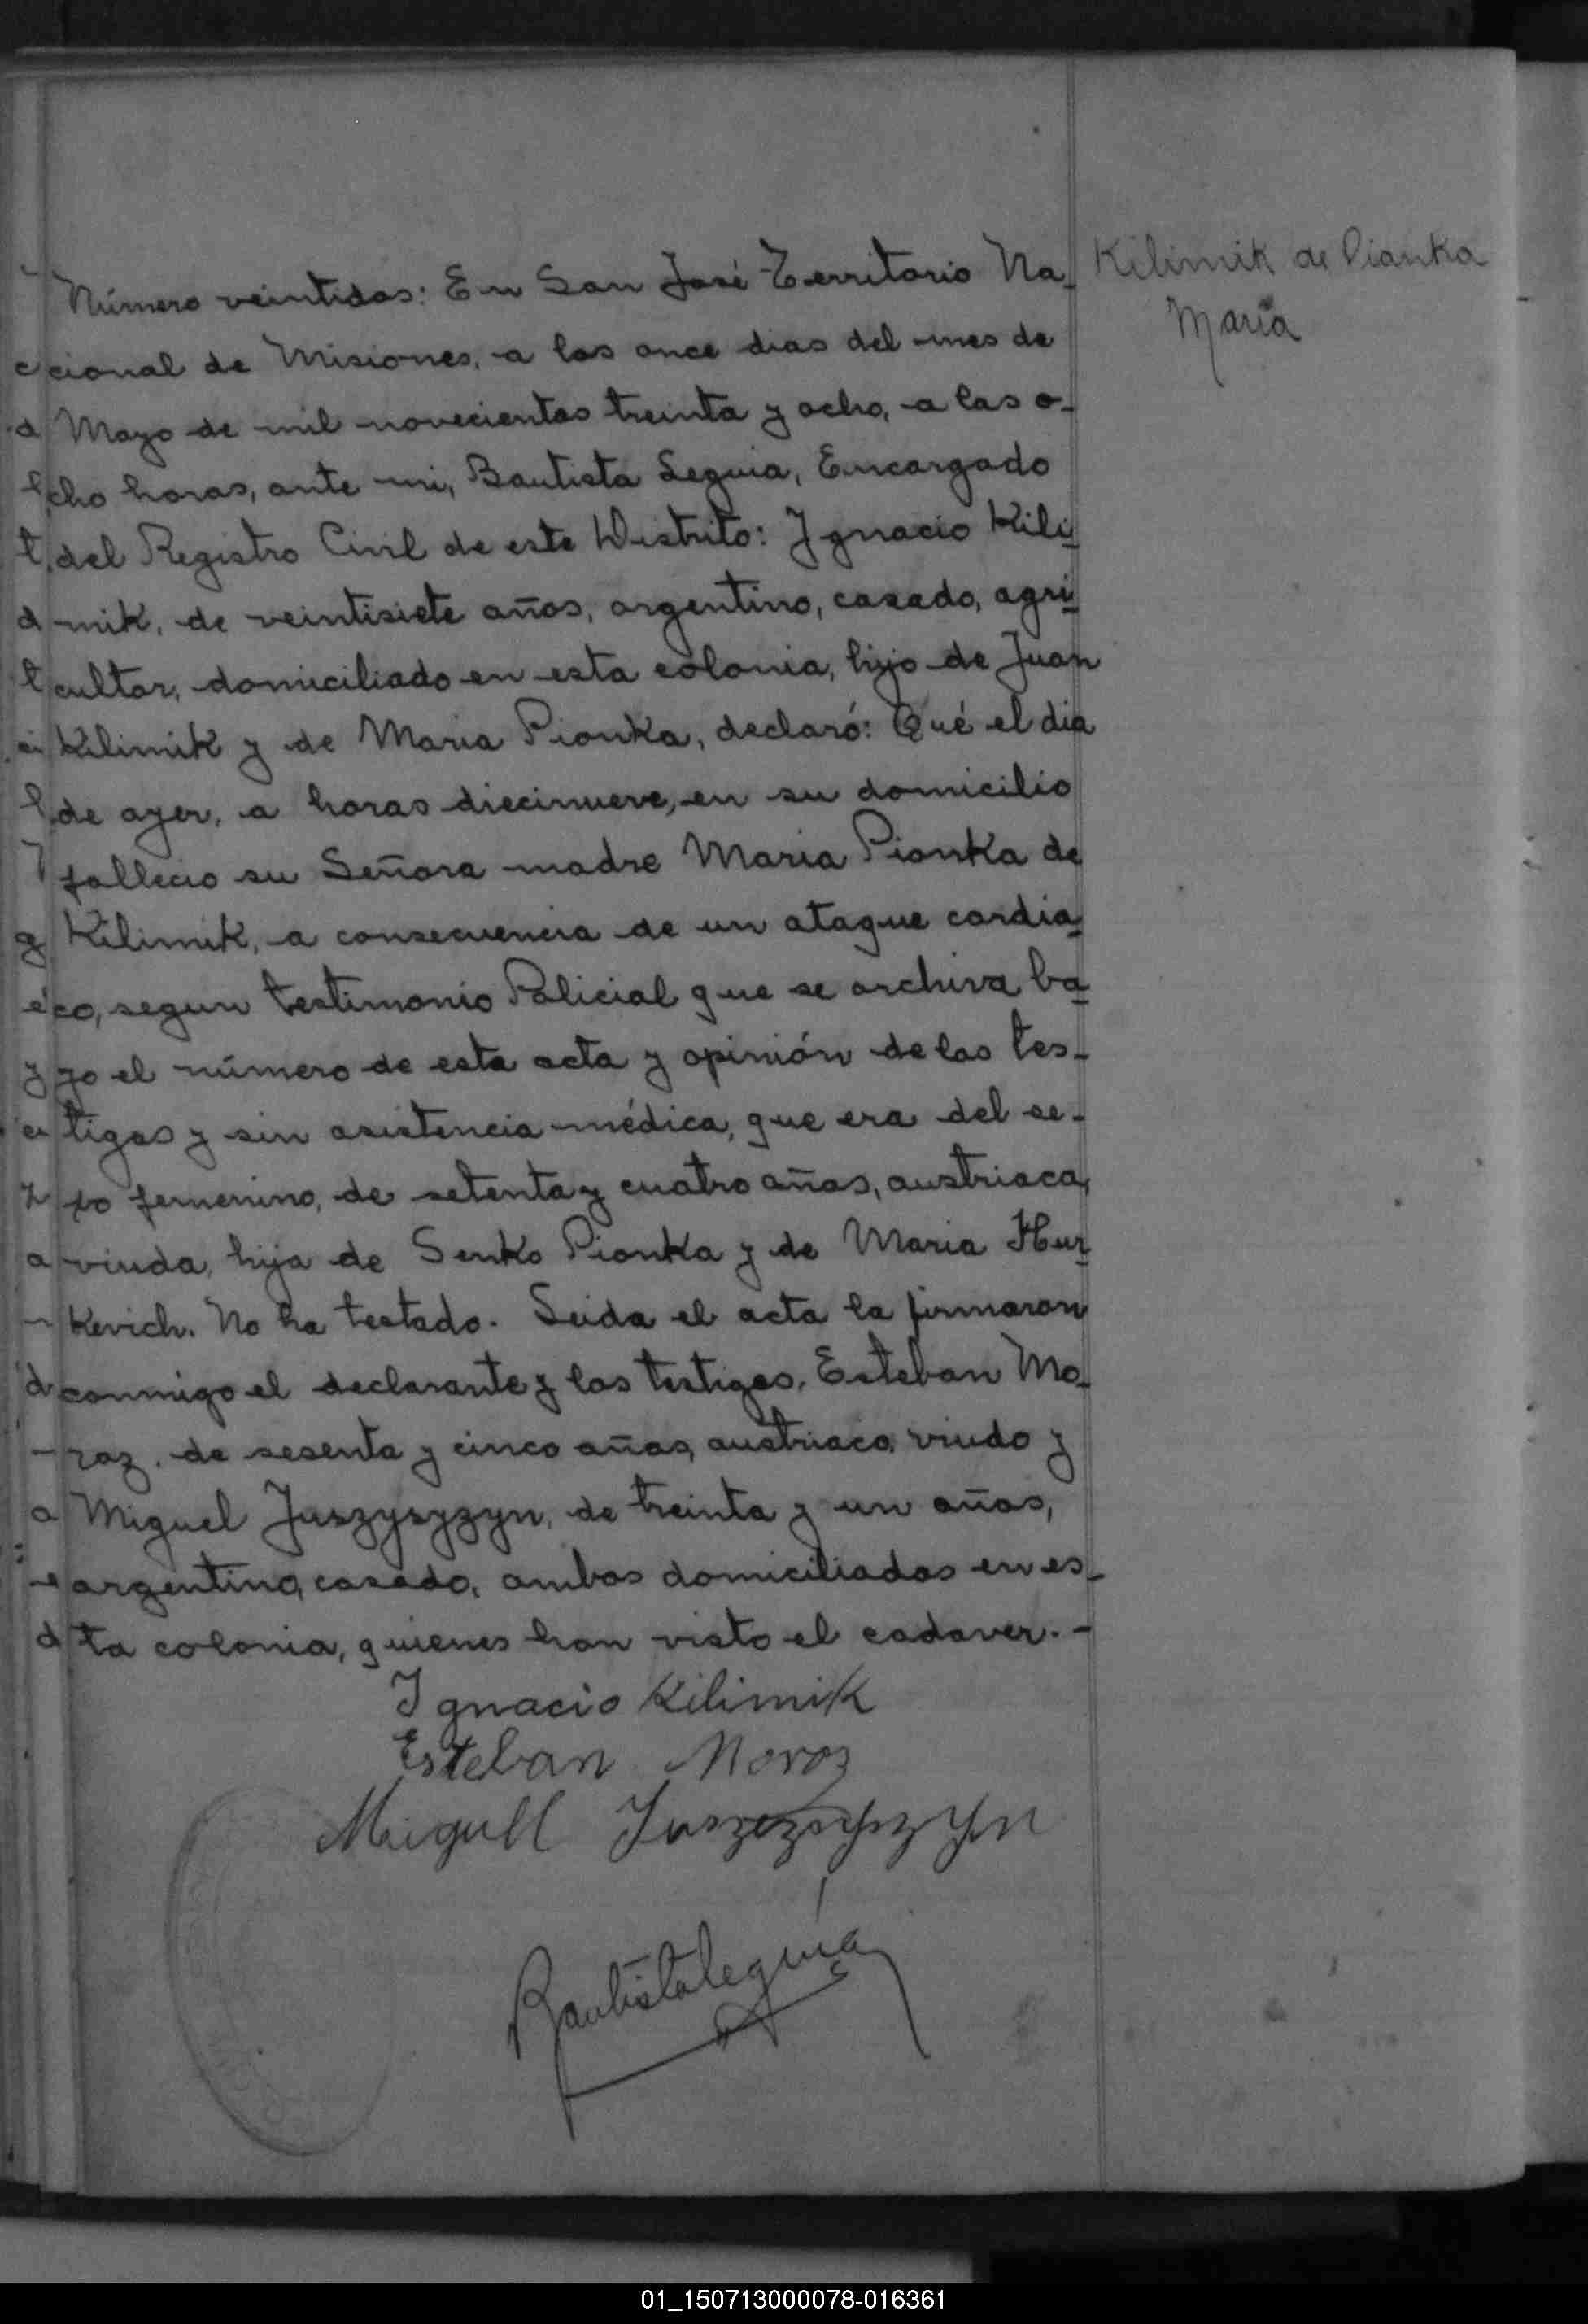 Número veintidos: En San José Territorio Na_
Kilimik de Pianka
María
cional de Misiones, a los once dias del mes de
Mayo de mil novecientos treinta y ocho, a las o-
cho horas, ante mi, Bautista Leguia, Encargado
del Registro Civil de este Distrito: Ignacio Kili_
mik, de veintisiete años, argentino, casado, agri_
cultor, domiciliado en esta colonia, hijo de Juan
Kilimik y de Maria Pionka, declaró: Qué el dia
de ayer, a horas diecinueve, en su domicilio
fallecio su Señora madre Maria Pionka de
Kilimik, a consecuencia de un ataque cardia_
co, segun testimonio Policial que se archiva ba_
jo el número de esta acta y opinión de los tes-
tigos y sin asistencia médica, que era del se-
xo femenino, de setenta y cuatro años, austriaca,
viuda, hija de Senko Pionka y de Maria Hur_
kevich. No ha testado. Leida el acta la firmaron
conmigo el declarante y los testigos, Esteban Mo_
roz, de sesenta y cinco años, austriaco, viudo y
Miguel Juszysyzyn, de treinta y un años,
argentino, casado, ambos domiciliados en es_
ta colonia, quienes han visto el cadaver. -
Ignacio Kilimik
Esteban Moroz
Miguell
Bautista Leguía
01_150713000078-016361